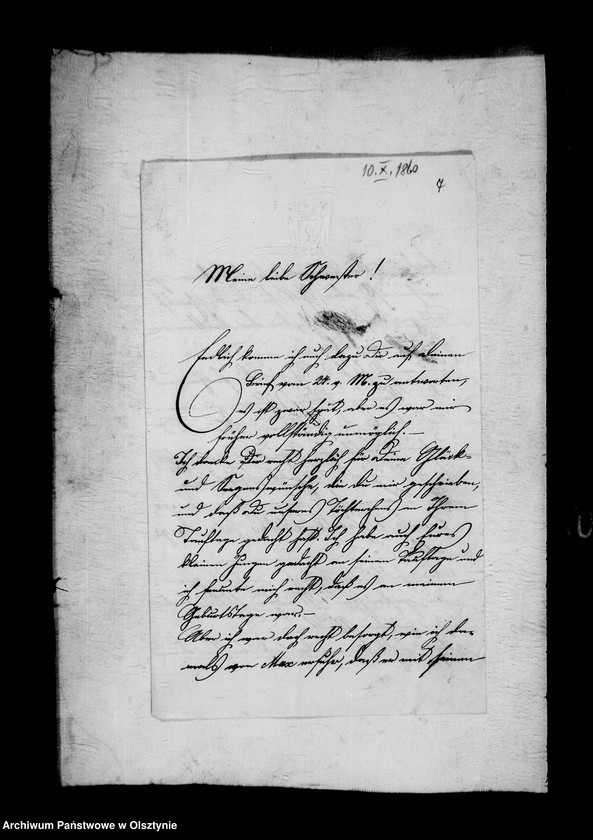 10. X. 1860
7
Meine liebe Schwester!
Endlich komme ich auch dazu Dir auf Deinen
Brief vom 24. v. M. zu antworten,
es ist zwar spät, aber es war mir
früher vollständig unmöglich.—
Ich danke Dir recht herzlich für Deine Glück-
und Segenswünsche, die Du mir geschrieben,
und daß Du unseres Töchterchens an Ihrem
Tauftage gedacht hast. Ich habe auch Eures
kleinen Jungen gedacht an seinem Tauftage und
ich freute mich recht, daß es an meinem
Geburtstage war.—
Aber ich war doch recht besorgt, wie ich da-
mals von Max erfuhr, daß er mit seinem
Archiwum Państwowe w Olsztynie